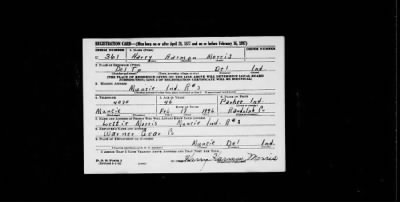 REGISTRATION CARD—(Men born on or after April 28, 1877 and on or before February 16, 1897)
SERIAL NUMBER 1. NAME (Print) ORDER NUMBER
U 361 Harry Harmon Morris
2. PLACE OF RESIDENCE (Print)
Del Ind.
(THE PLACE OF RESIDENCE GIVEN ON THE LINE ABOVE WILL DETERMINE LOCAL BOARD
JURISDICTION; LINE 2 OF REGISTRATION CERTIFICATE WILL BE IDENTICAL)
3. MAILING ADDRESS
Muncie Ind R#3
4. TELEPHONE 5. AGE IN YEARS 6. PLACE OF BIRTH
46 Parker Ind
Muncie Feb 1896 Randolph Co
7. NAME AND ADDRESS OF PERSON WHO WILL ALWAYS KNOW YOUR ADDRESS
Morris Muncie Ind. R#3
8. EMPLOYER'S NAME AND ADDRESS
Warner Gear Co
9. PLACE OF EMPLOYMENT OR BUSINESS
Muncie Del Ind.
I AFFIRM THAT I HAVE VERIFIED ABOVE ANSWERS AND THAT THEY ARE TRUE.
Harry Harmon Morris